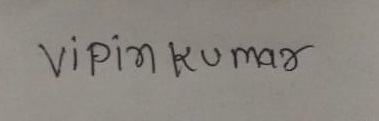 vipin kumar